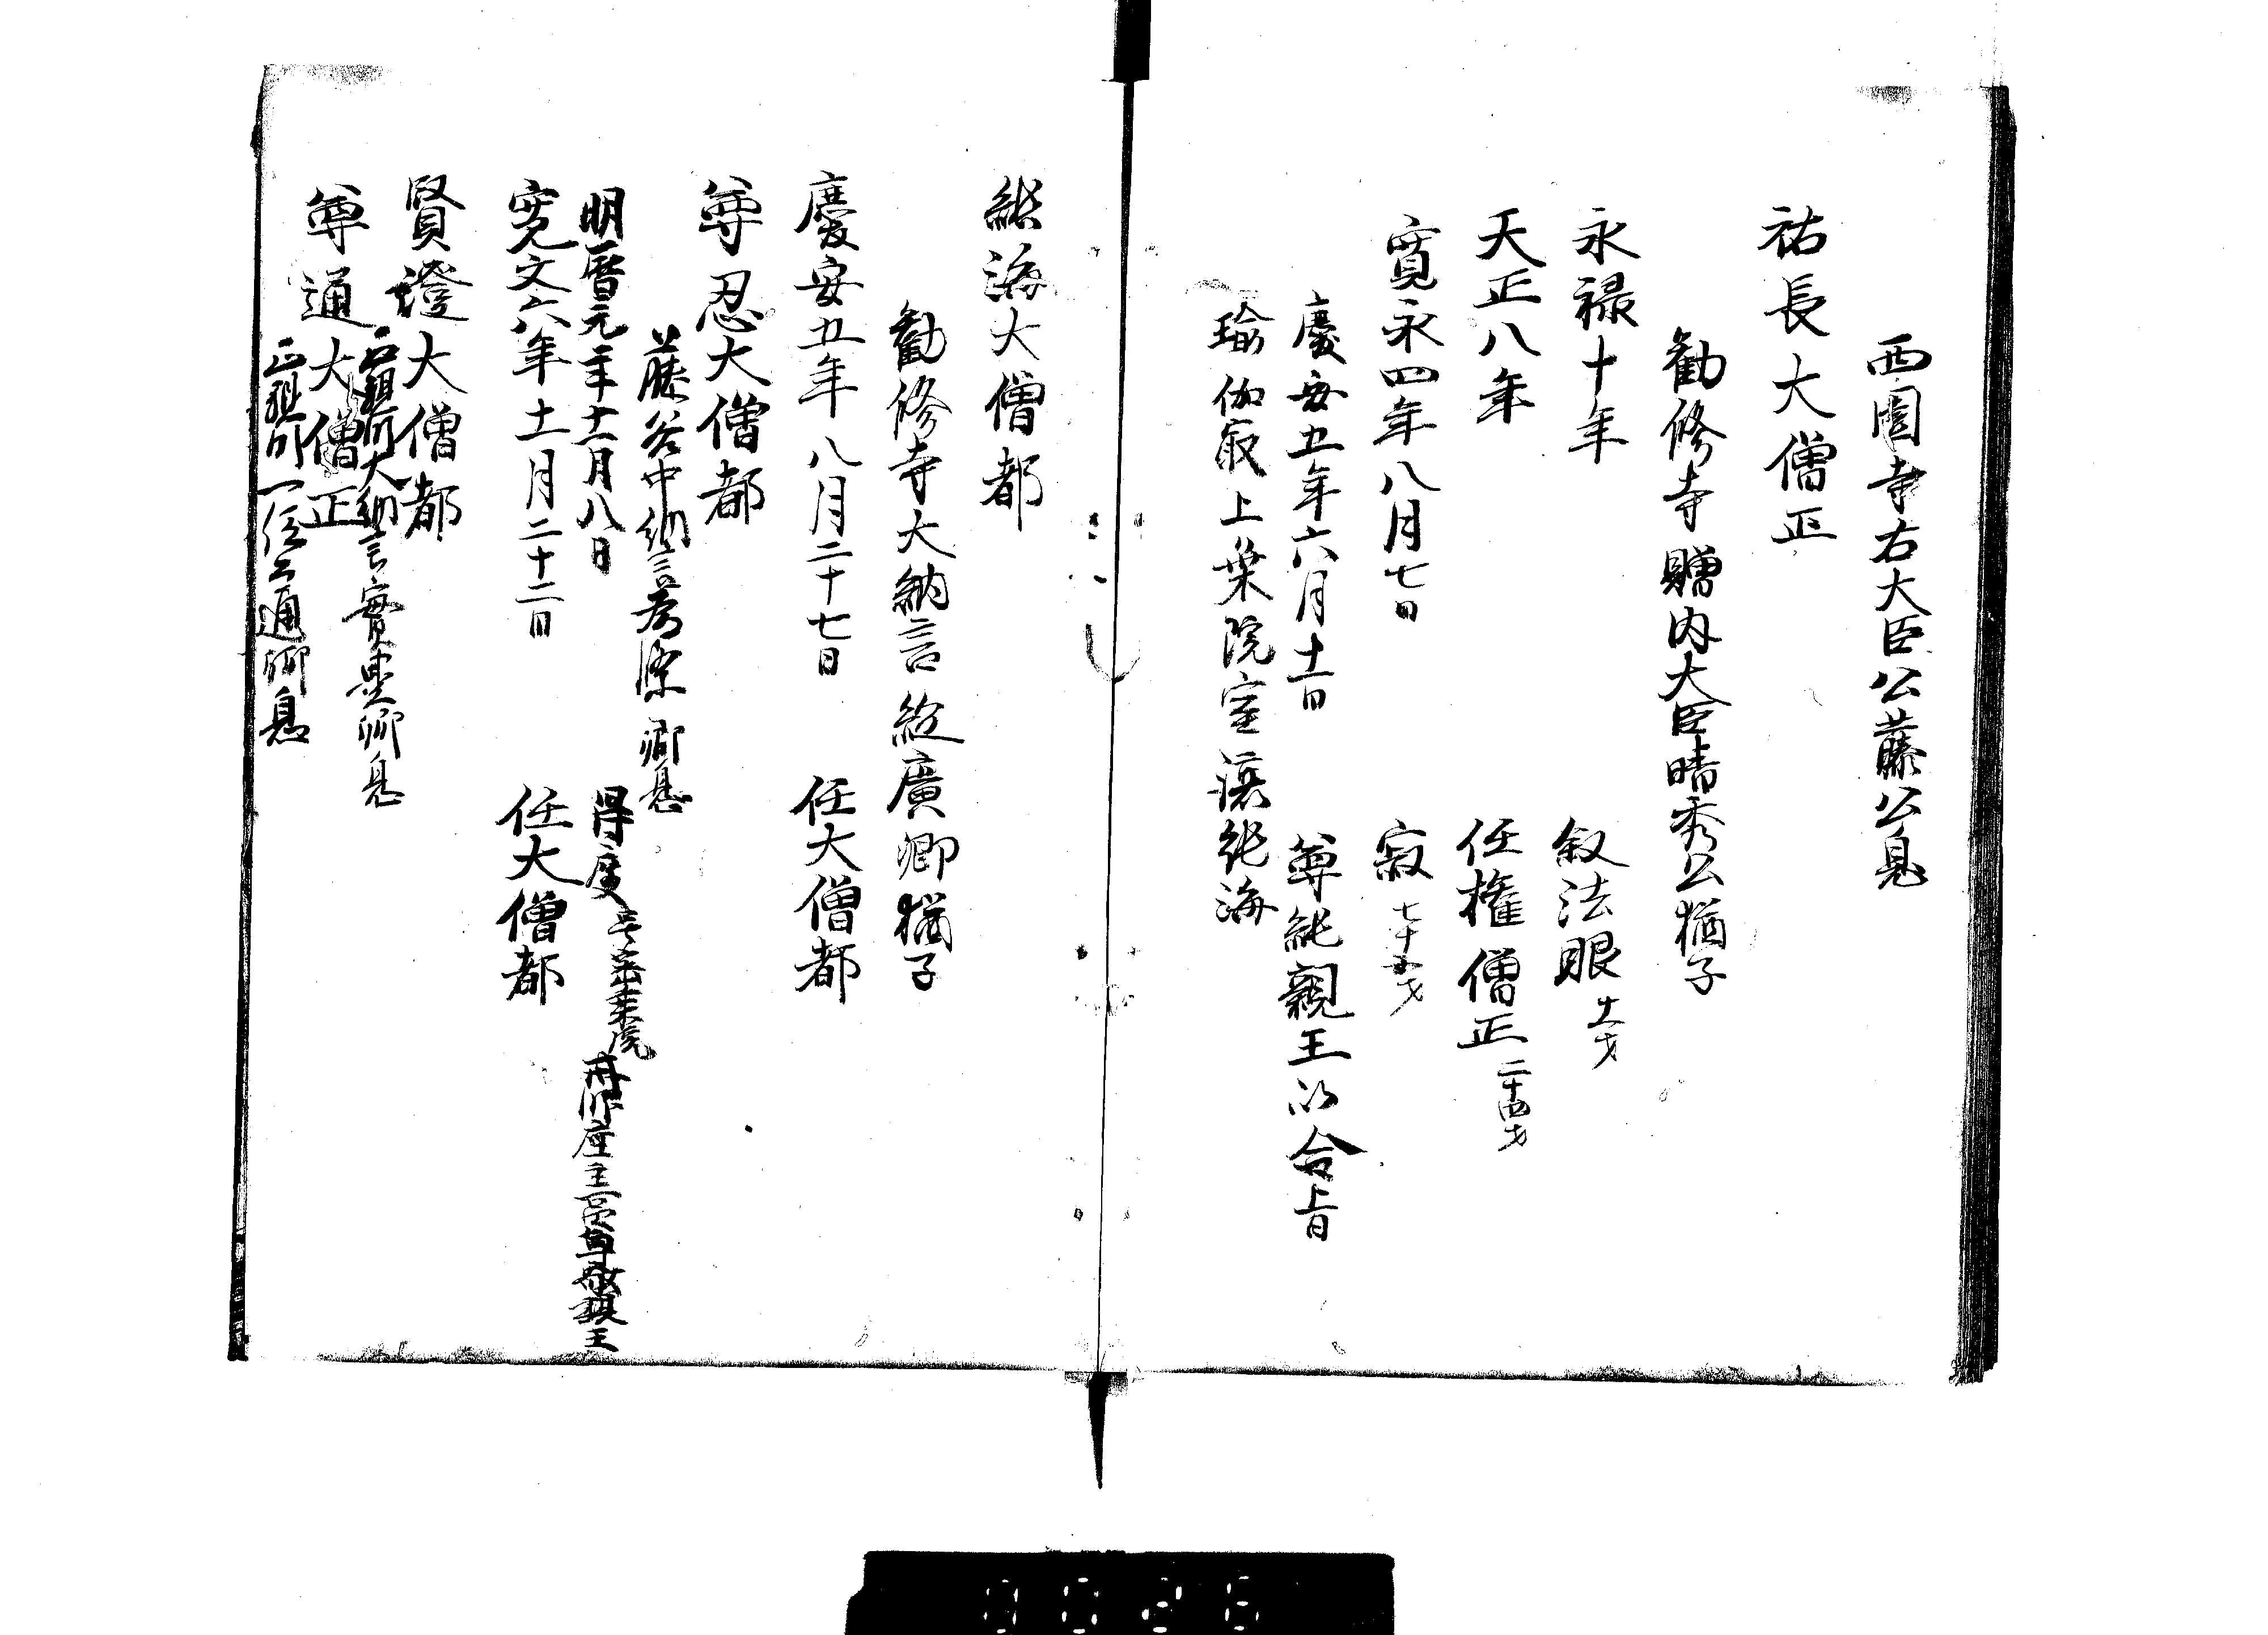 西園寺右大臣公藤公息
祐長大僧正
勧修寺贈内大臣晴秀公猶子
永禄十年 叙法眼十一才
天正八年 任権僧正二十四才
寛永四年八月七日 寂七十
慶安五年六月十一日 尊純親王以令旨
瑜伽最上乗院室譲純海
純海大僧都
勧修寺大納言経廣卿猶子
慶安五年八月二十七日 任大僧都
尊忍大僧都
藤谷中納言為條卿息
明暦元年十一月八日 得度 戒師座主宮尊敬親王
寛文六年十一月二十二日 任大僧都
賢證大僧都
大納言實卿息
尊通大僧正
一位通卿息
0026